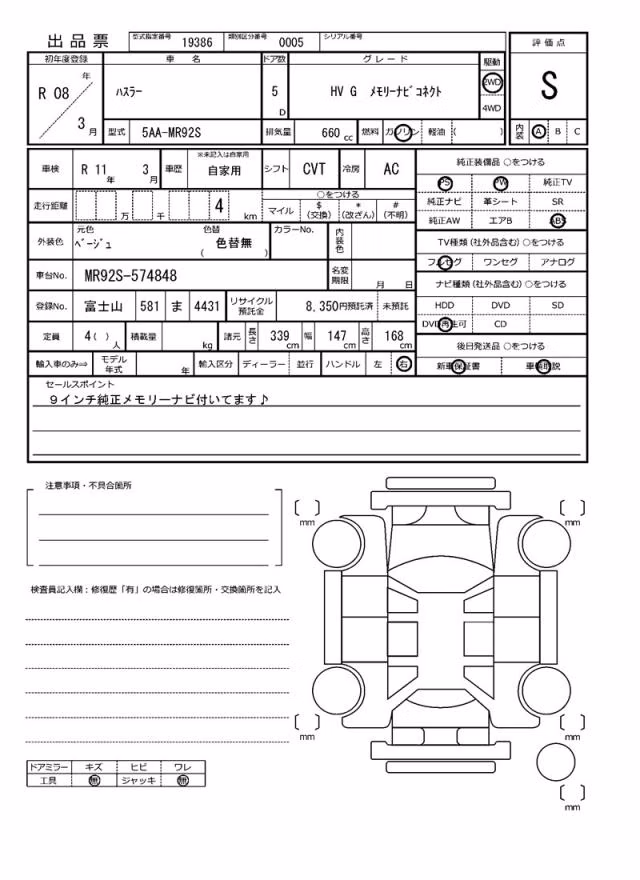 出品票 型式指定番号 19386 類別区分番号 0005 シリアル番号
評価点
S
内装 A B C
初年度登録 車名 ドア数 グレード 駆動
R 08 年 3 月 ハスラー 5 D HV G メモリーナビコネクト 2WD 4WD
型式 5AA-MR92S 排気量 660 cc 燃料 ガソリン 軽油 ( )
車検 R 11 年 3 月 車歴 ※未記入は自家用 自家用 シフト CVT 冷房 AC
走行距離 万 千 4 km
○をつける
マイル $(交換) *(改ざん) #(不明)
外装色 元色 ベージュ 色替 色替無 ( ) カラーNo. 内装色
車台No. MR92S-574848 名変期限 月 日
登録No. 富士山 581 ま 4431 リサイクル預託金 8,350円預託済 未預託
定員 4( )人 積載量 kg 諸元 長さ 339 cm 幅 147 cm 高さ 168 cm
輸入車のみ⇨ モデル年式 年 輸入区分 ディーラー 並行 ハンドル 左 右
純正装備品 ○をつける
PS PW 純正TV
純正ナビ 革シート SR
純正AW エアB ABS
TV種類(社外品含む)○をつける
フルセグ ワンセグ アナログ
ナビ種類(社外品含む)○をつける
HDD DVD SD
DVD再生可 CD
後日発送品 ○をつける
新車保証書 車輌取説
セールスポイント
９インチ純正メモリーナビ付いてます♪
注意事項・不具合箇所
検査員記入欄：修復歴「有」の場合は修復箇所・交換箇所を記入
ドアミラー キズ ヒビ ワレ
工具 無 ジャッキ 無
mm
mm
mm
mm
mm